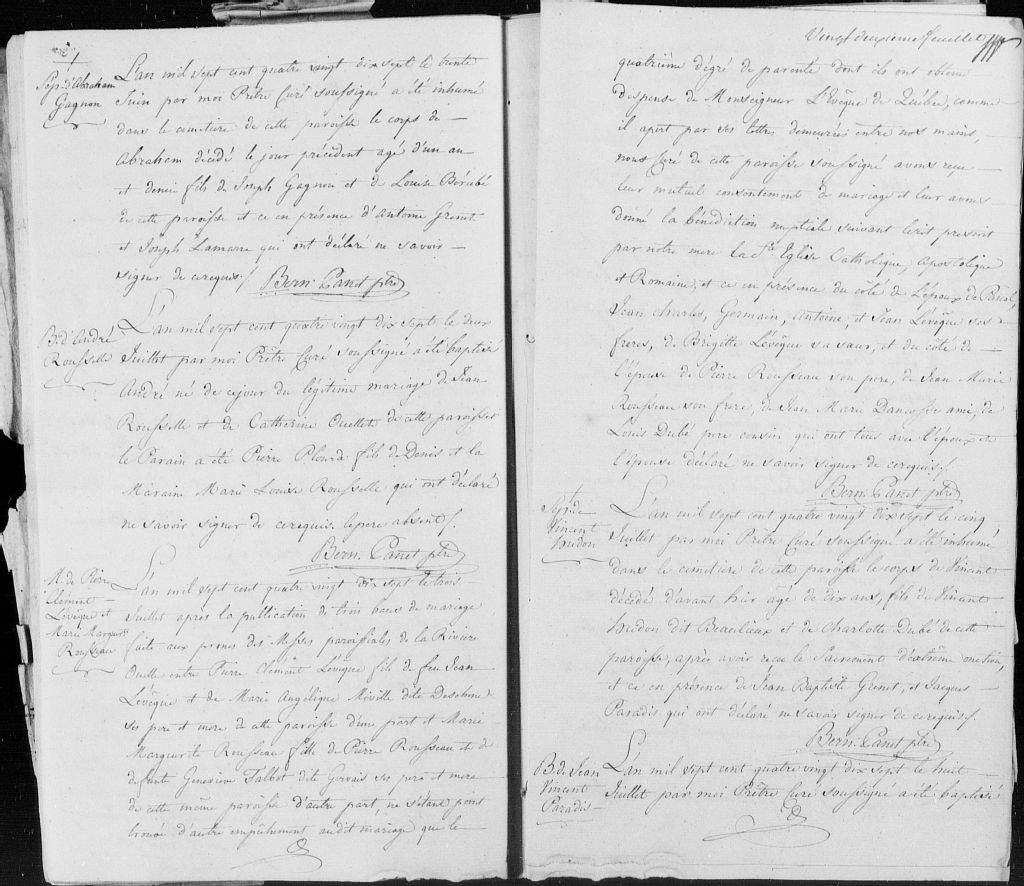 Sep. d'Abraham
Gagnon
L'an mil sept cent quatre vingt dix sept le trente
Juin par moi Prêtre Curé soussigné a été inhumé
dans le cimetiere de cette paroisse le corps de —
Abraham décédé le jour précédent agé d'un an
et demi fils de Joseph Gagnon et de Louise Bérubé
de cette paroisse et ce en présence d'Antoine
et Joseph Lamarre qui ont déclaré ne savoir —
signer de ce requis ./. Bern. Panet ptre
B. d'André
Rousselle
L'an mil sept cent quatre vingt dix sept le deux
Juillet par moi Prêtre Curé soussigné a été baptisé
André né de ce jour du légitime mariage de Jean
Rousselle et de Catherine Ouellete de cette paroisse
le Parain a été Pierre Plourde fils de Denis et la
Maraine Marie Louise Rousselle qui ont déclaré
ne savoir signer de ce requis. le pere absent ./.
Bern. Panet ptre
M. de Pierre
Clément
Lévêque et
Marie Margur.
Rousseau
L'an mil sept cent quatre vingt dix sept le trois
Juillet après la publication de trois bans de mariage
faite aux prones des Messes paroissiales de la Riviere
Ouelle entre Pierre Clément Lévêque fils de feu Jean
Lévêque et de Marie Angélique Miville dite Deschene
ses pere et mere de cette paroisse d'une part et Marie
Marguerite Rousseau fille de Pierre Rousseau et de
defunte Genevieve Talbot dite Gervais ses pere et mere
de cette même paroisse d'autre part, ne s'étant point
trouvé d'autre empêchement audit mariage que le —
Vingt deuxieme feuillet
quatriéme dégré de parenté dont ils ont obtenu
dispense de Monseigneur L'Evêque de Quebec, comme —
il apert par ses lettres demeurées entre nos mains, —
nous Curé de cette paroisse soussigné avons reçu —
leur mutuel consentement de mariage et leur avons
donné la bénédiction nuptiale suivant le rit prescrit
par notre mere la Ste. Eglise Catholique, apostolique
et Romaine, et ce en présence du coté de L'époux de Pascal,
Jean charles, Germain, Antoine, et Jean Lévêque ses —
freres, de Brigitte Lévêque sa sœur, et du côte de —
l'épouse de Pierre Rousseau son pere, de Jean Marie
Rousseau son frere, de Jean Marie Dancosse ami, de
Louis Dubé pere cousin qui ont tous avec l'époux et
l'épouse déclaré ne savoir signer de ce requis ./.
Bern. Panet ptre
Sep. de
Vincent
hudon
L'an mil sept cent quatre vingt dix sept le cinq
Juillet par moi Prêtre Curé soussigné a été inhumé
dans le cimetiere de cette paroisse le corps de Vincent
décédé d'avant hier agé de dix ans, fils de Vincent
hudon dit Beaulieux et de Charlotte Dubé de cette
paroisse, après avoir reçu le Sacrement d'extrême onction,
et ce en présence de Jean Baptiste Grenet, et Jacques —
Paradis qui ont déclaré ne savoir signer de ce requis ./.
Bern. Panet ptre
B. de Jean
Vincent
Paradis
L'an mil sept cent quatre vingt dix sept le huit
Juillet par moi Prêtre Curé soussigné a été baptisé